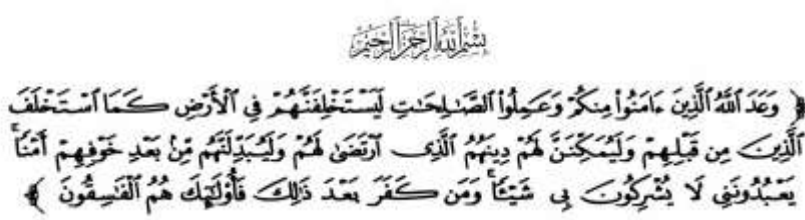 بسم الله الرحمن الرحيم
﴿ وَعَدَ اللَّهُ الَّذِينَ ءَامَنُوا۟ مِنكُمْ وَعَمِلُوا۟ الصَّٰلِحَٰتِ لَيَسْتَخْلِفَنَّهُمْ فِي ٱلْأَرْضِ كَمَا ٱسْتَخْلَفَ
ٱلَّذِينَ مِن قَبْلِهِمْ وَلَيُمَكِّنَنَّ لَهُمْ دِينَهُمُ ٱلَّذِى ٱرْتَضَىٰ لَهُمْ وَلَيُبَدِّلَنَّهُم مِّنۢ بَعْدِ خَوْفِهِمْ أَمْنًا ۚ
يَعْبُدُونَنِي لَا يُشْرِكُونَ بِي شَيْـًٔا ۚ وَمَن كَفَرَ بَعْدَ ذَٰلِكَ فَأُو۟لَٰٓئِكَ هُمُ ٱلْفَٰسِقُونَ ﴾